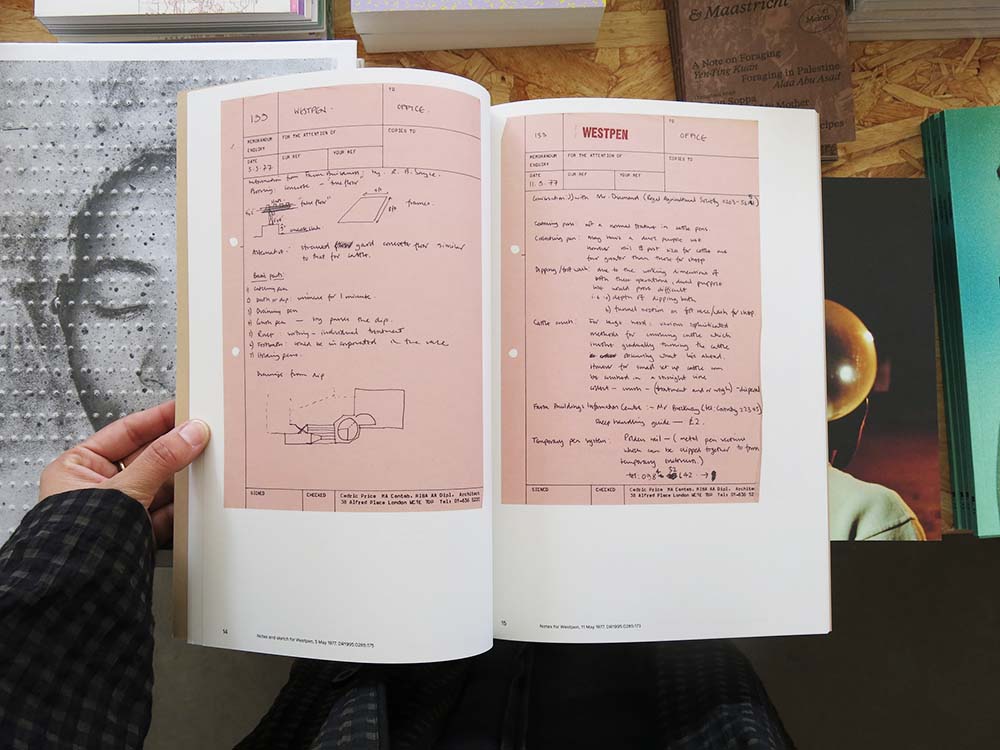 & Maastricht
Melon
A Note on Foraging
Yen-Ping Kuan
Foraging in Palestine
Alaa Abu Asad
Soppa
Mother
cipes
133
WESTPEN.
TO
OFFICE.
MEMORANDUM
ENQUIRY
FOR THE ATTENTION OF
COPIES TO
DATE
5.5.77
OUR REF
YOUR REF
Information from
Flooring: concrete -
"tube floor"
frames.
Alternative: strawed yard concrete floor similar
to that for cattle.
Basic parts:
1) Catching pen
2) Bath or dip minimum for 1 minute.
3) Draining pen
4) pen - by passes the dip.
5) Race - individual treatment
6) Footbath: could be incorporated in the race
7) Holding pens.
Drawings from dip
SIGNED
CHECKED
Cedric Price MA Cantab. RIBA AA Dipl. Architect
38 Alfred Place London WC1E 7DP Tel: 01-636 5220
14
Notes and sketch for Westpen, 5 May 1977. DR1995:0289:175
133
WESTPEN
TO
OFFICE
MEMORANDUM
ENQUIRY
FOR THE ATTENTION OF
COPIES TO
DATE
11.5.77
OUR REF
YOUR REF
Conversation with Mr Drummond (Royal Agricultural Society
Catching pen: not a normal feature in cattle pens.
Collecting pen: may have a dual purpose but
however rail & post size for cattle are
far greater than those for sheep
Dipping/foot bath: due to the working dimensions of
both these operations, dual purpose
use would prove difficult
i.e. a) depth of dipping bath
b) tunnel section on for sheep.
Cattle crush: For large herd: various sophisticated
methods for involving cattle which
involve gradually turning the cattle
obscuring what lies ahead.
However for small set up cattle can
be worked in a straight line
collect - crush - (treatment and or weigh) - dispersal
Farm Buildings Information Centre: - Mr (tel: Coventry 22345)
Sheep handling guide - £2.
Temporary pen system: Polden rail - (metal pen sections
which can be clipped together to form
temporary enclosures.)
SIGNED
CHECKED
Cedric Price MA Cantab. RIBA AA Dipl. Architec
38 Alfred Place London WC1E 7DP Tel: 01-636 52
15
Notes for Westpen, 11 May 1977. DR1995:0289:173